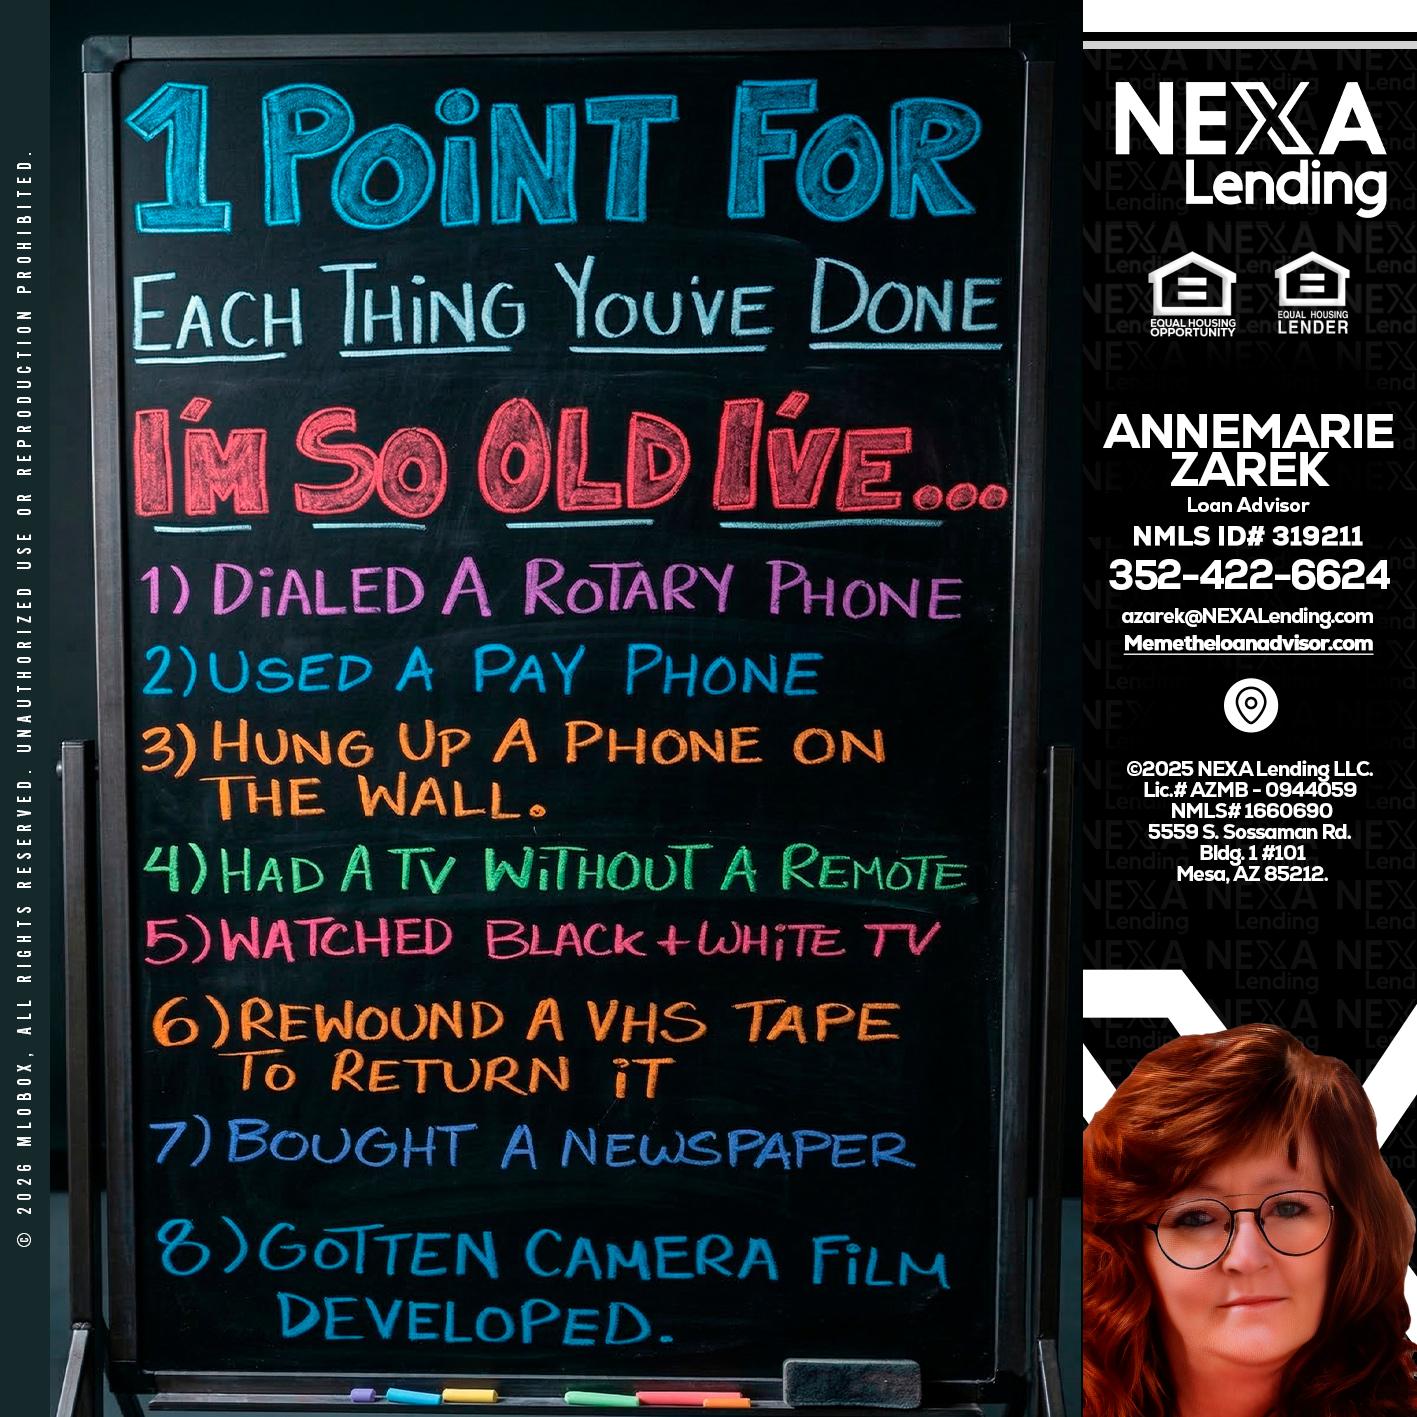 1 POINT FOR
EACH THING YOU'VE DONE
I'M SO OLD I'VE...
1) DIALED A ROTARY PHONE
2) USED A PAY PHONE
3) HUNG UP A PHONE ON
THE WALL.
4) HAD A TV WITHOUT A REMOTE
5) WATCHED BLACK + WHITE TV
6) REWOUND A VHS TAPE
TO RETURN IT
7) BOUGHT A NEWSPAPER
8) GOTTEN CAMERA FILM
DEVELOPED.
© 2026 MLOBOX, ALL RIGHTS RESERVED. UNAUTHORIZED USE OR REPRODUCTION PROHIBITED.
NEXA
Lending
EQUAL HOUSING
OPPORTUNITY
EQUAL HOUSING
LENDER
ANNEMARIE
ZAREK
Loan Advisor
NMLS ID# 319211
352-422-6624
azarek@NEXALending.com
Memetheloanadvisor.com
©2025 NEXA Lending LLC.
Lic.# AZMB - 0944059
NMLS# 1660690
5559 S. Sossaman Rd.
Bldg. 1 #101
Mesa, AZ 85212.